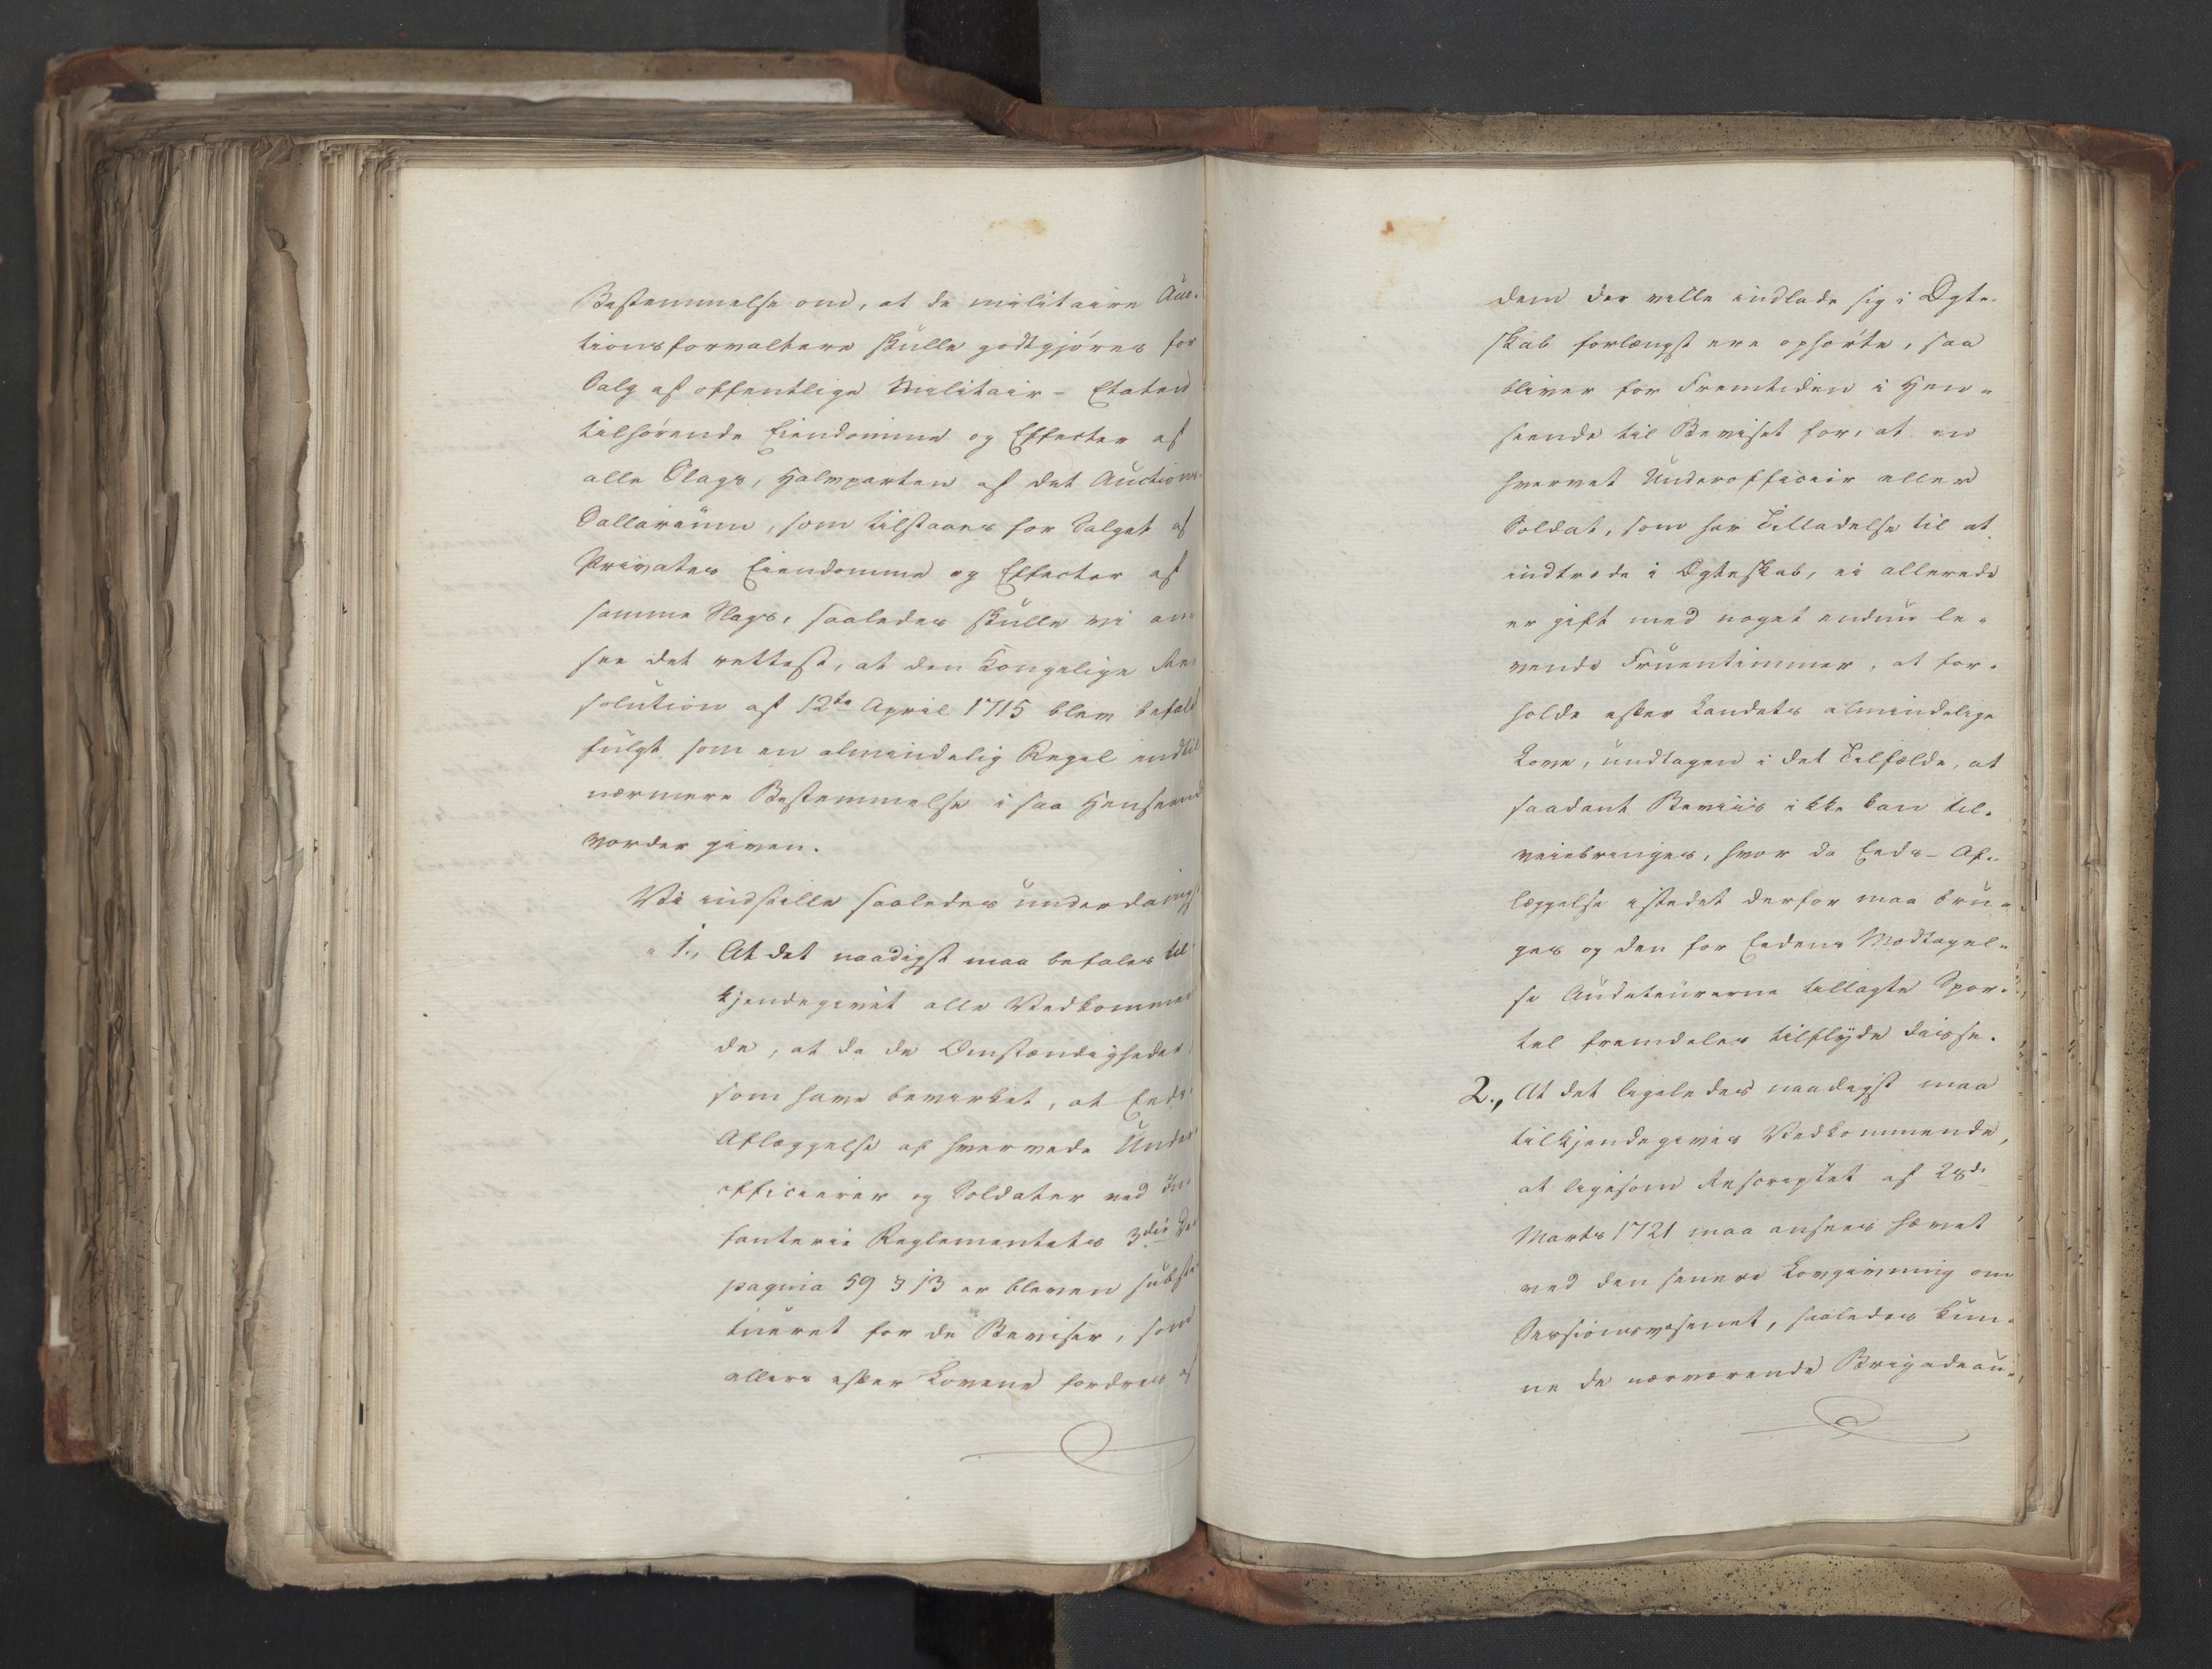 Bestemmelse om, at de militaire Auc-
tionsforvaltere skulle godtgjøres for
Salg af offentlige Militair-Etaten
tilhørende Eiendomme og Effecter af
alle Slags, Halvparten af det Auctions-
Sallarium, som tilstaaes for Salget af
Privates Eiendomme og Effecter af
samme Slags, saaledes skulle vi an-
see det rettest, at den Kongelige Re-
solution af 12te April 1715 blev befalet
fulgt som en almindelig Regel indtil
nærmere Bestemmelse i saa Henseende
vorder given.
Vi indstille saaledes underdanigst
1., At det naadigst maa befales til-
kjendegivet alle Vedkommen-
de, at da de Omstændigheder
som have bevirket, at Eeds-
Aflæggelse af hvervede Under-
officierer og Soldater ved In-
fanterie Reglementets 3die
pagina 59 § 13 er bleven substi-
tueret for de Beviser, som
ellers efter Lovene fordres af
dem der ville indlade sig i Ægte-
skab forlængst ere ophørte, saa
bliver for Fremtiden i Hen-
seende til Beviset for, at en
hvervet Underofficeer eller
Soldat, som har Tilladelse til at
indtræde i Ægteskab, ei allerede
er gift med noget endnu le-
vende Fruentimmer, at for-
holde efter Landets almindelige
Love, undtagen i det Tilfælde, at
saadant Beviis ikke kan til-
veiebringes, hvor da Eeds-Af-
læggelse istedet derfor maa bru-
ges og den for Eedens Modtagel-
se Auditeurerne tillagte Spor-
tel fremdeles tilflyde disse.
2., At det ligeledes naadigst maa
tilkjendegives Vedkommende,
at ligesom Rescriptet af 28de
Marts 1721 maa ansees hævet
ved den senere Lovgivning om
Sessionsvæsenet, saaledes kun-
ne de nærværende Brigadeau-